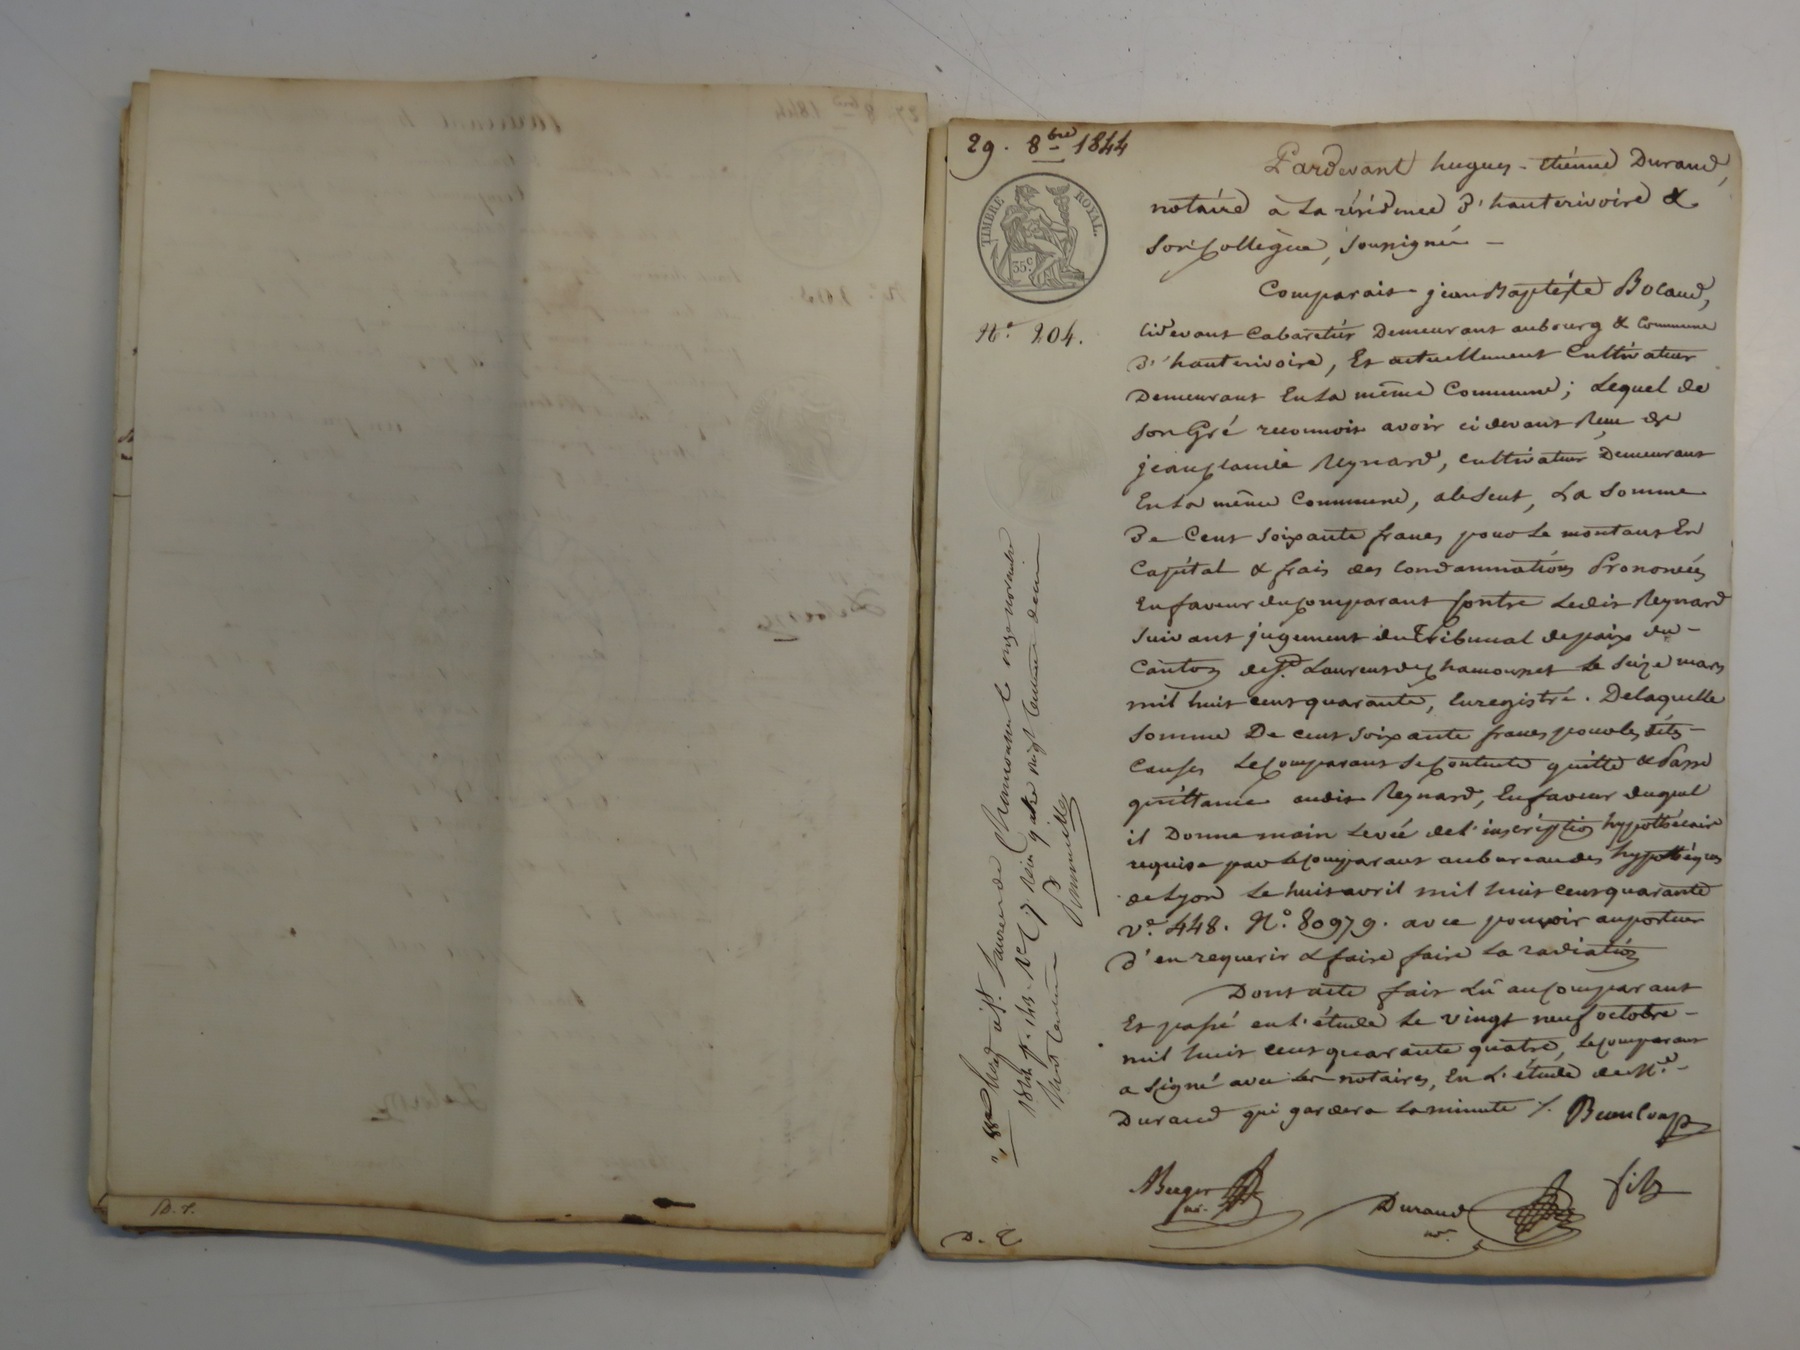 29. 8bre 1844
TIMBRE ROYAL.
35 c.
N.o 204.
Pardevant hugues-étienne Durand,
notaire à La résidence d'hauterivoire &
Son Collègue, Soussignés —
Comparait jean Baptiste
cidevant Cabaretier Demeurant au bourg & Commune
d'hauterivoire, Et actuellement Cultivateur
Demeurant En La même Commune; Lequel de
Son Gré reconnoit avoir ci devant Reçu de
jean Reynard, cultivateur Demeurant
En La même Commune, absent, La Somme
De Cent Soixante francs pour Le montant En
Capital & frais des Condamnations Prononcées
En faveur du comparant Contre Ledit Reynard
Suivant jugement du Tribunal de paix du -
Canton de St. Laurent de Chamousset Le Seize mars
mil huit cent quarante, Enregistré. De laquelle
Somme De cent Soixante francs pour les dites -
Causes Le Comparant Se Contente quitte & Passe
quittance audit Reynard, En faveur duquel
il Donne main Levée de l'inscription hypothécaire
requise par Le Comparant au bureau des hypothèques
de Lyon Le huit avril mil huit cent quarante
v.e 448. N.o 80979. avec pouvoir au porteur
d'en requerir & faire faire La radiation
Dont acte fait Lû au Comparant
Et passé en L'étude Le vingt neuf octobre -
mil huit cent quarante quatre, Le Comparant
a Signé avec Les notaires, En L'étude de M.e -
Durand qui gardera La minute /.
fils
Durand
no.
D. E.
St. Laurent de Chamousset le onze novembre
1844 f. 143. Vo C. 7. Reçu quatre vingt centimes decime
huit centimes
D. E.